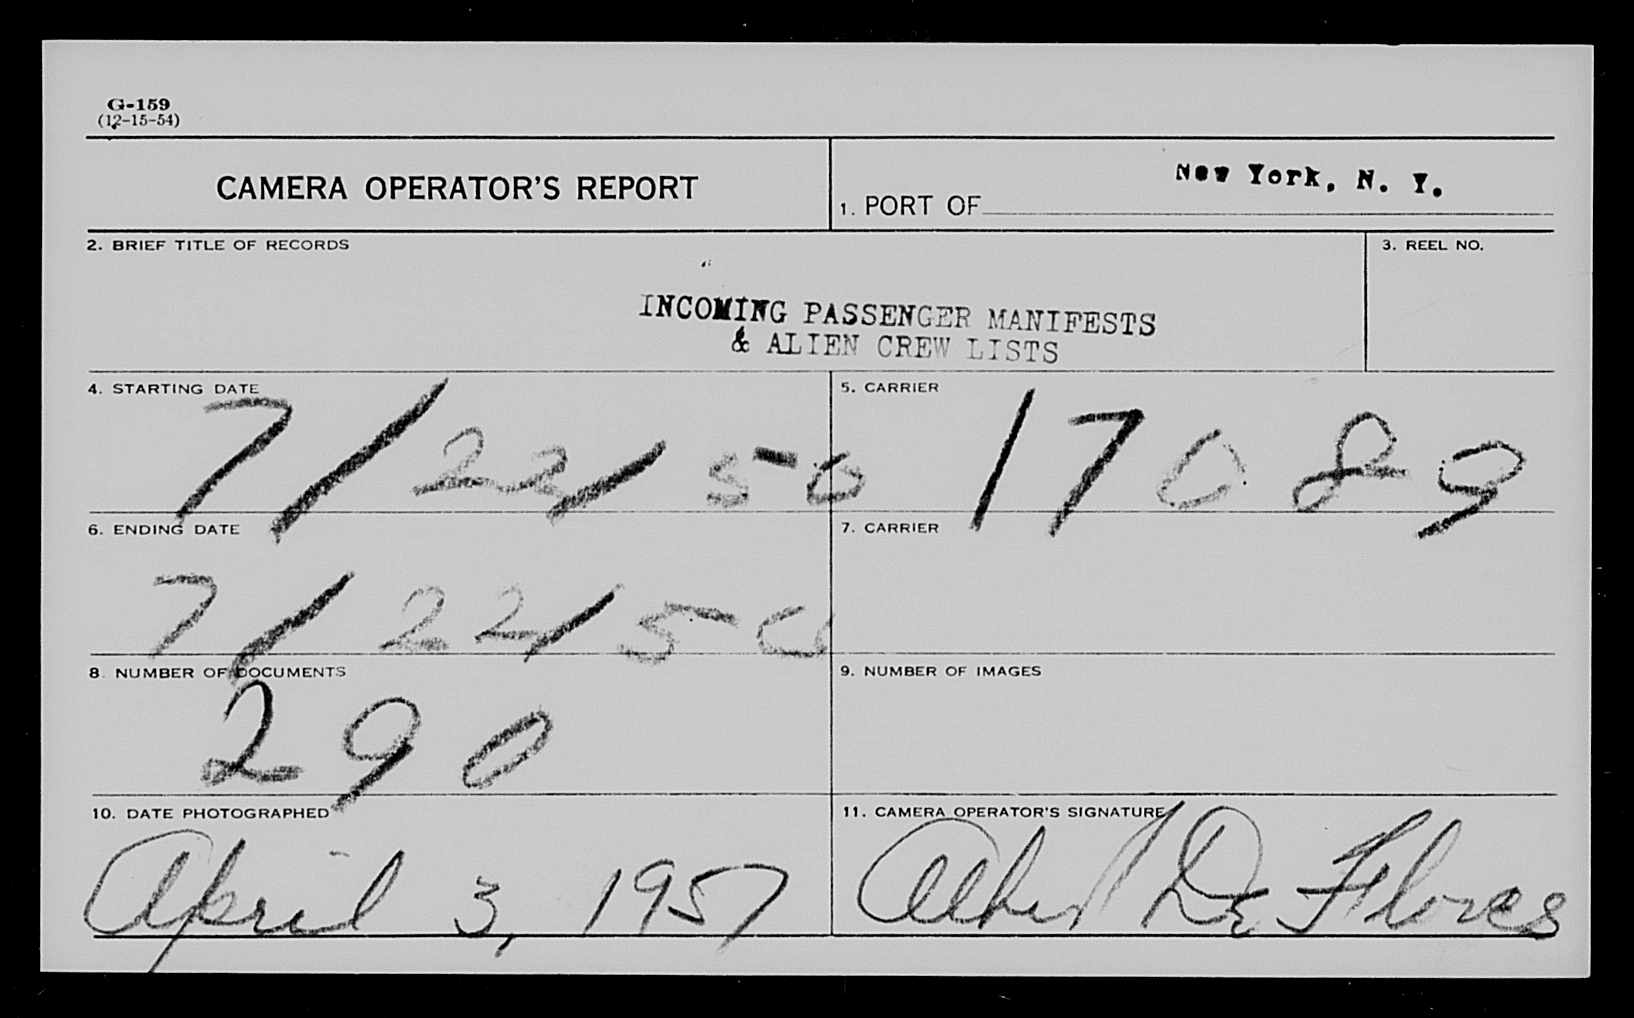 G-159
(12-15-54)
CAMERA OPERATOR'S REPORT
1. PORT OF New York, N. Y.
2. BRIEF TITLE OF RECORDS
3. REEL NO.
INCOMING PASSENGER MANIFESTS
& ALIEN CREW LISTS
4. STARTING DATE
7/22/50
5. CARRIER
17089
6. ENDING DATE
7/22/50
7. CARRIER
8. NUMBER OF DOCUMENTS
290
9. NUMBER OF IMAGES
10. DATE PHOTOGRAPHED
April 3, 1957
11. CAMERA OPERATOR'S SIGNATURE
Albert De Flores